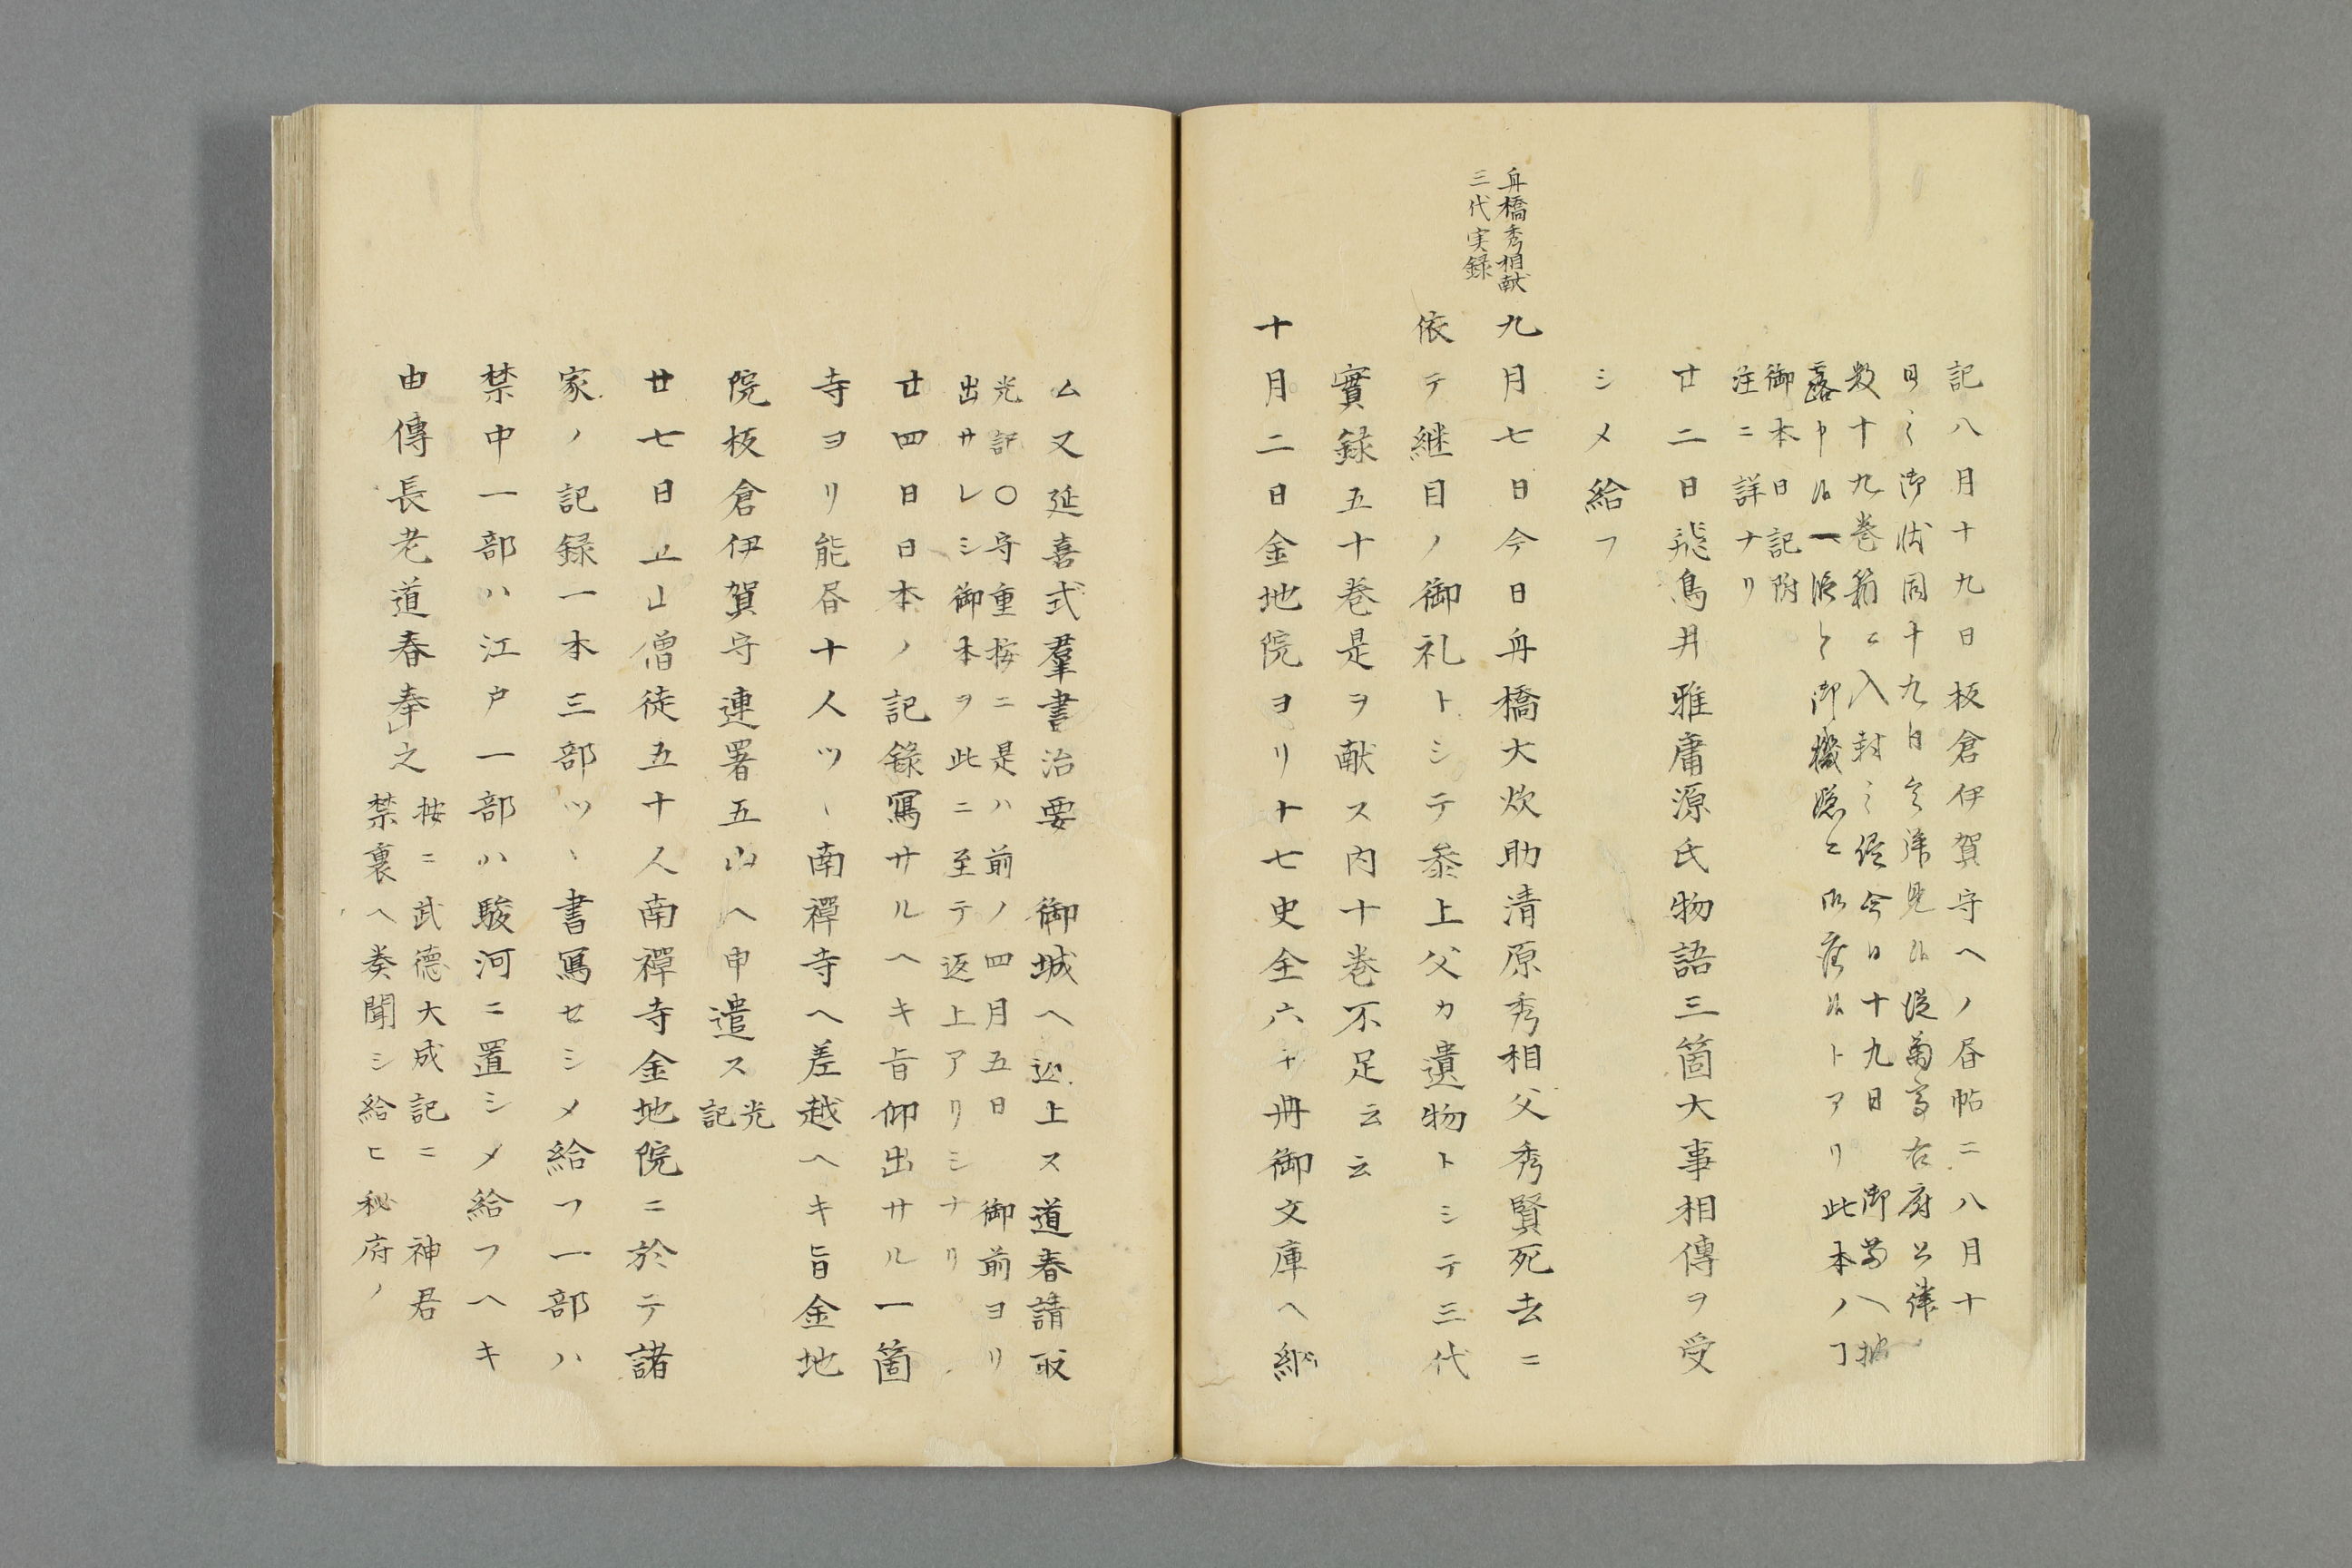 記八月十九日板倉伊賀守ヘノ昏帖ニ八月十
日之御状同十九日
数十九巻箱ニ入封之 今日十九日
露申候一段ト御機嫌ニ 候トアリ此本ノヿ
御本日記附
注ニ詳ナリ
廿二日飛鳥井雅庸源氏物語三箇大事相傳ヲ受
シメ給フ
舟橋秀相献
三代実録
九月七日今日舟橋大炊助清原秀相父秀賢死去ニ
依テ継目ノ御礼トシテ参上父カ遺物トシテ三代
實録五十巻是ヲ献ス内十巻不足云云
十月二日金地院ヨリ十七史全六十冊御文庫ヘ納
ム又延喜式羣書治要 御城ヘ返上ス道春請取
光記〇守重按ニ是ハ前ノ四月五日 御前ヨリ
出サレシ御本ヲ此ニ至テ返上アリシナリ
廿四日日本ノ記錄寫サルヘキ旨仰出サル一箇
寺ヨリ能昏十人ツヽ南禪寺ヘ差越ヘキ旨金地
院板倉伊賀守連署五山ヘ申遣ス光
記
廿七日五山僧徒五十人南禪寺金地院ニ於テ諸
家ノ記録一本三部ツヽ書寫セシメ給フ一部ハ
禁中一部ハ江戸一部ハ駿河ニ置シメ給フヘキ
由傳長老道春奉之
按ニ武德大成記ニ 神君
禁裏ヘ奏聞シ給ヒ秘府ノ